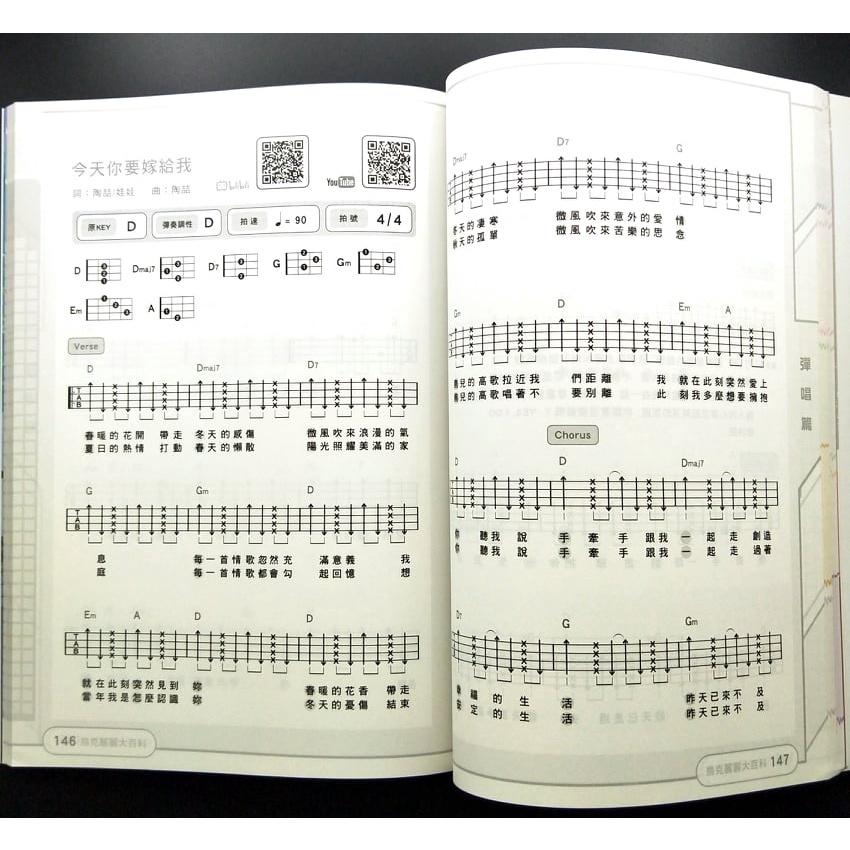 今天你要嫁給我
詞：陶喆/娃娃 曲：陶喆
bilibili
YouTube
原KEY D 彈奏調性 D 拍速 ♩= 90 拍號 4/4
D Dmaj7 D7 G Gm
Em A
Verse
D Dmaj7 D7
TAB
春暖的花開 帶走 冬天的感傷 微風吹來浪漫的氣
夏日的熱情 打動 春天的懶散 陽光照耀美滿的家
G Gm D
TAB
息 每一首情歌忽然充 滿意義 我
庭 每一首情歌都會勾 起回憶 想
Em A D D
TAB
就在此刻突然見到 妳 春暖的花香 帶走
當年我是怎麼認識 妳 冬天的憂傷 結束
146 烏克麗麗大百科
Dmaj7 D7 G
冬天的凄寒 微風吹來意外的愛 情
秋天的孤單 微風吹來苦樂的思 念
Gm D Em A
鳥兒的高歌拉近我 們距離 我 就在此刻突然愛上
的高歌唱著不 要別離 此 刻我多麼想要擁抱
Chorus
D D Dmaj7
你 聽我 說 手 牽 手 跟我 一 起 走 創造
你 聽我 說 手 牽 手 跟我 一 起 走 過著
D7 G Gm
幸 福 的 生 活 昨天已來不 及
安 定 的 生 活 昨天已來不 及
彈唱篇
烏克麗麗大百科 147